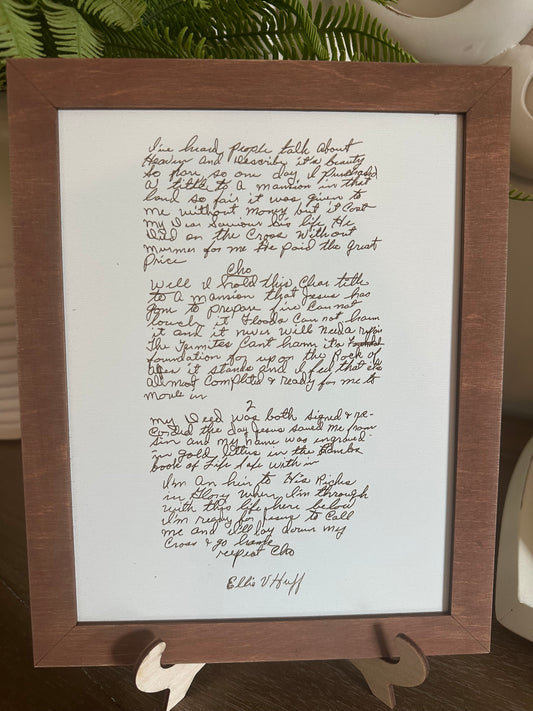 I've heard people talk about
Heaven and describe it's beauty
so rare, so one day I purchased
a title to a mansion in that
land so fair it was given to
me without money but it cost
my dear Saviour his life He
died on the Cross without
murmer for me He paid the great
price
Cho
Well I hold this clear title
to a mansion that Jesus has
gone to prepare fire can not
touch it floods can not harm
it and it never will need a
The Termites Can't harm it's
foundation for up on the Rock of
ages it stands and I feel that it's
Allmost Complete & ready for me to
move in
2
my deed was both signed & re-
corded the day Jesus saved me from
sin and my name was engraved
in gold letters in the Lambs
book of Life safe with in
I'm an heir to His Riches
in Glory when I'm through
with this life here below
I'm ready for Jesus to call
me and I'll lay down my
Cross & go home
repeat Cho
Ellie V Huff